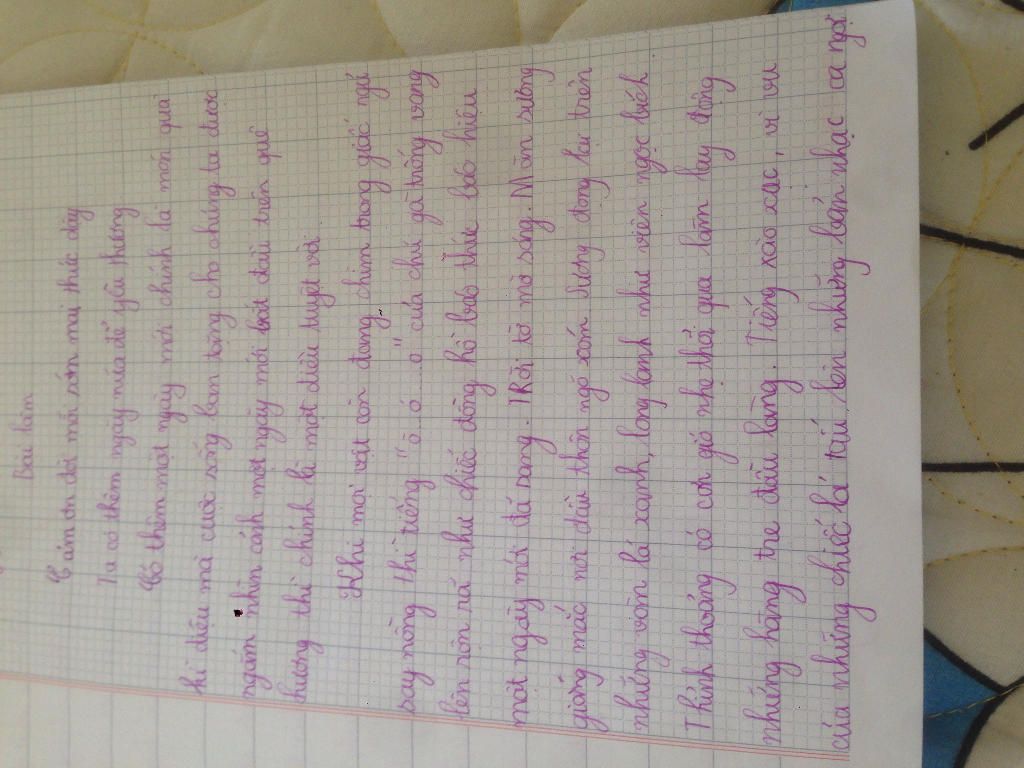 Bài làm
Cảm ơn đời mỗi sớm mai thức dậy
Ta có thêm ngày nữa để yêu thương
Có thêm một ngày mới chính là món quà
kì diệu mà cuộc sống ban tặng cho chúng ta được
ngắm nhìn cảnh một ngày mới bắt đầu trên quê
hương thì chính là một điều tuyệt vời
Khi mọi vật còn đang chìm trong giấc ngủ
say nồng thì tiếng "ò...ó......o" của chú gà trống vang
lên rộn rã như chiếc đồng hồ báo thức báo hiệu
một ngày mới đã sang. Trời tờ mờ sáng. Màn sương
giăng mắc nơi đầu thôn ngõ xóm sương đọng lại trên
những vòm lá xanh, long lanh như viên ngọc bích
Thỉnh thoảng có cơn gió nhẹ thổi qua làm lay động
những hàng tre đầu làng. Tiếng xào xạc, vi vu
của những chiếc lá tấu lên những bản nhạc ca ngợi